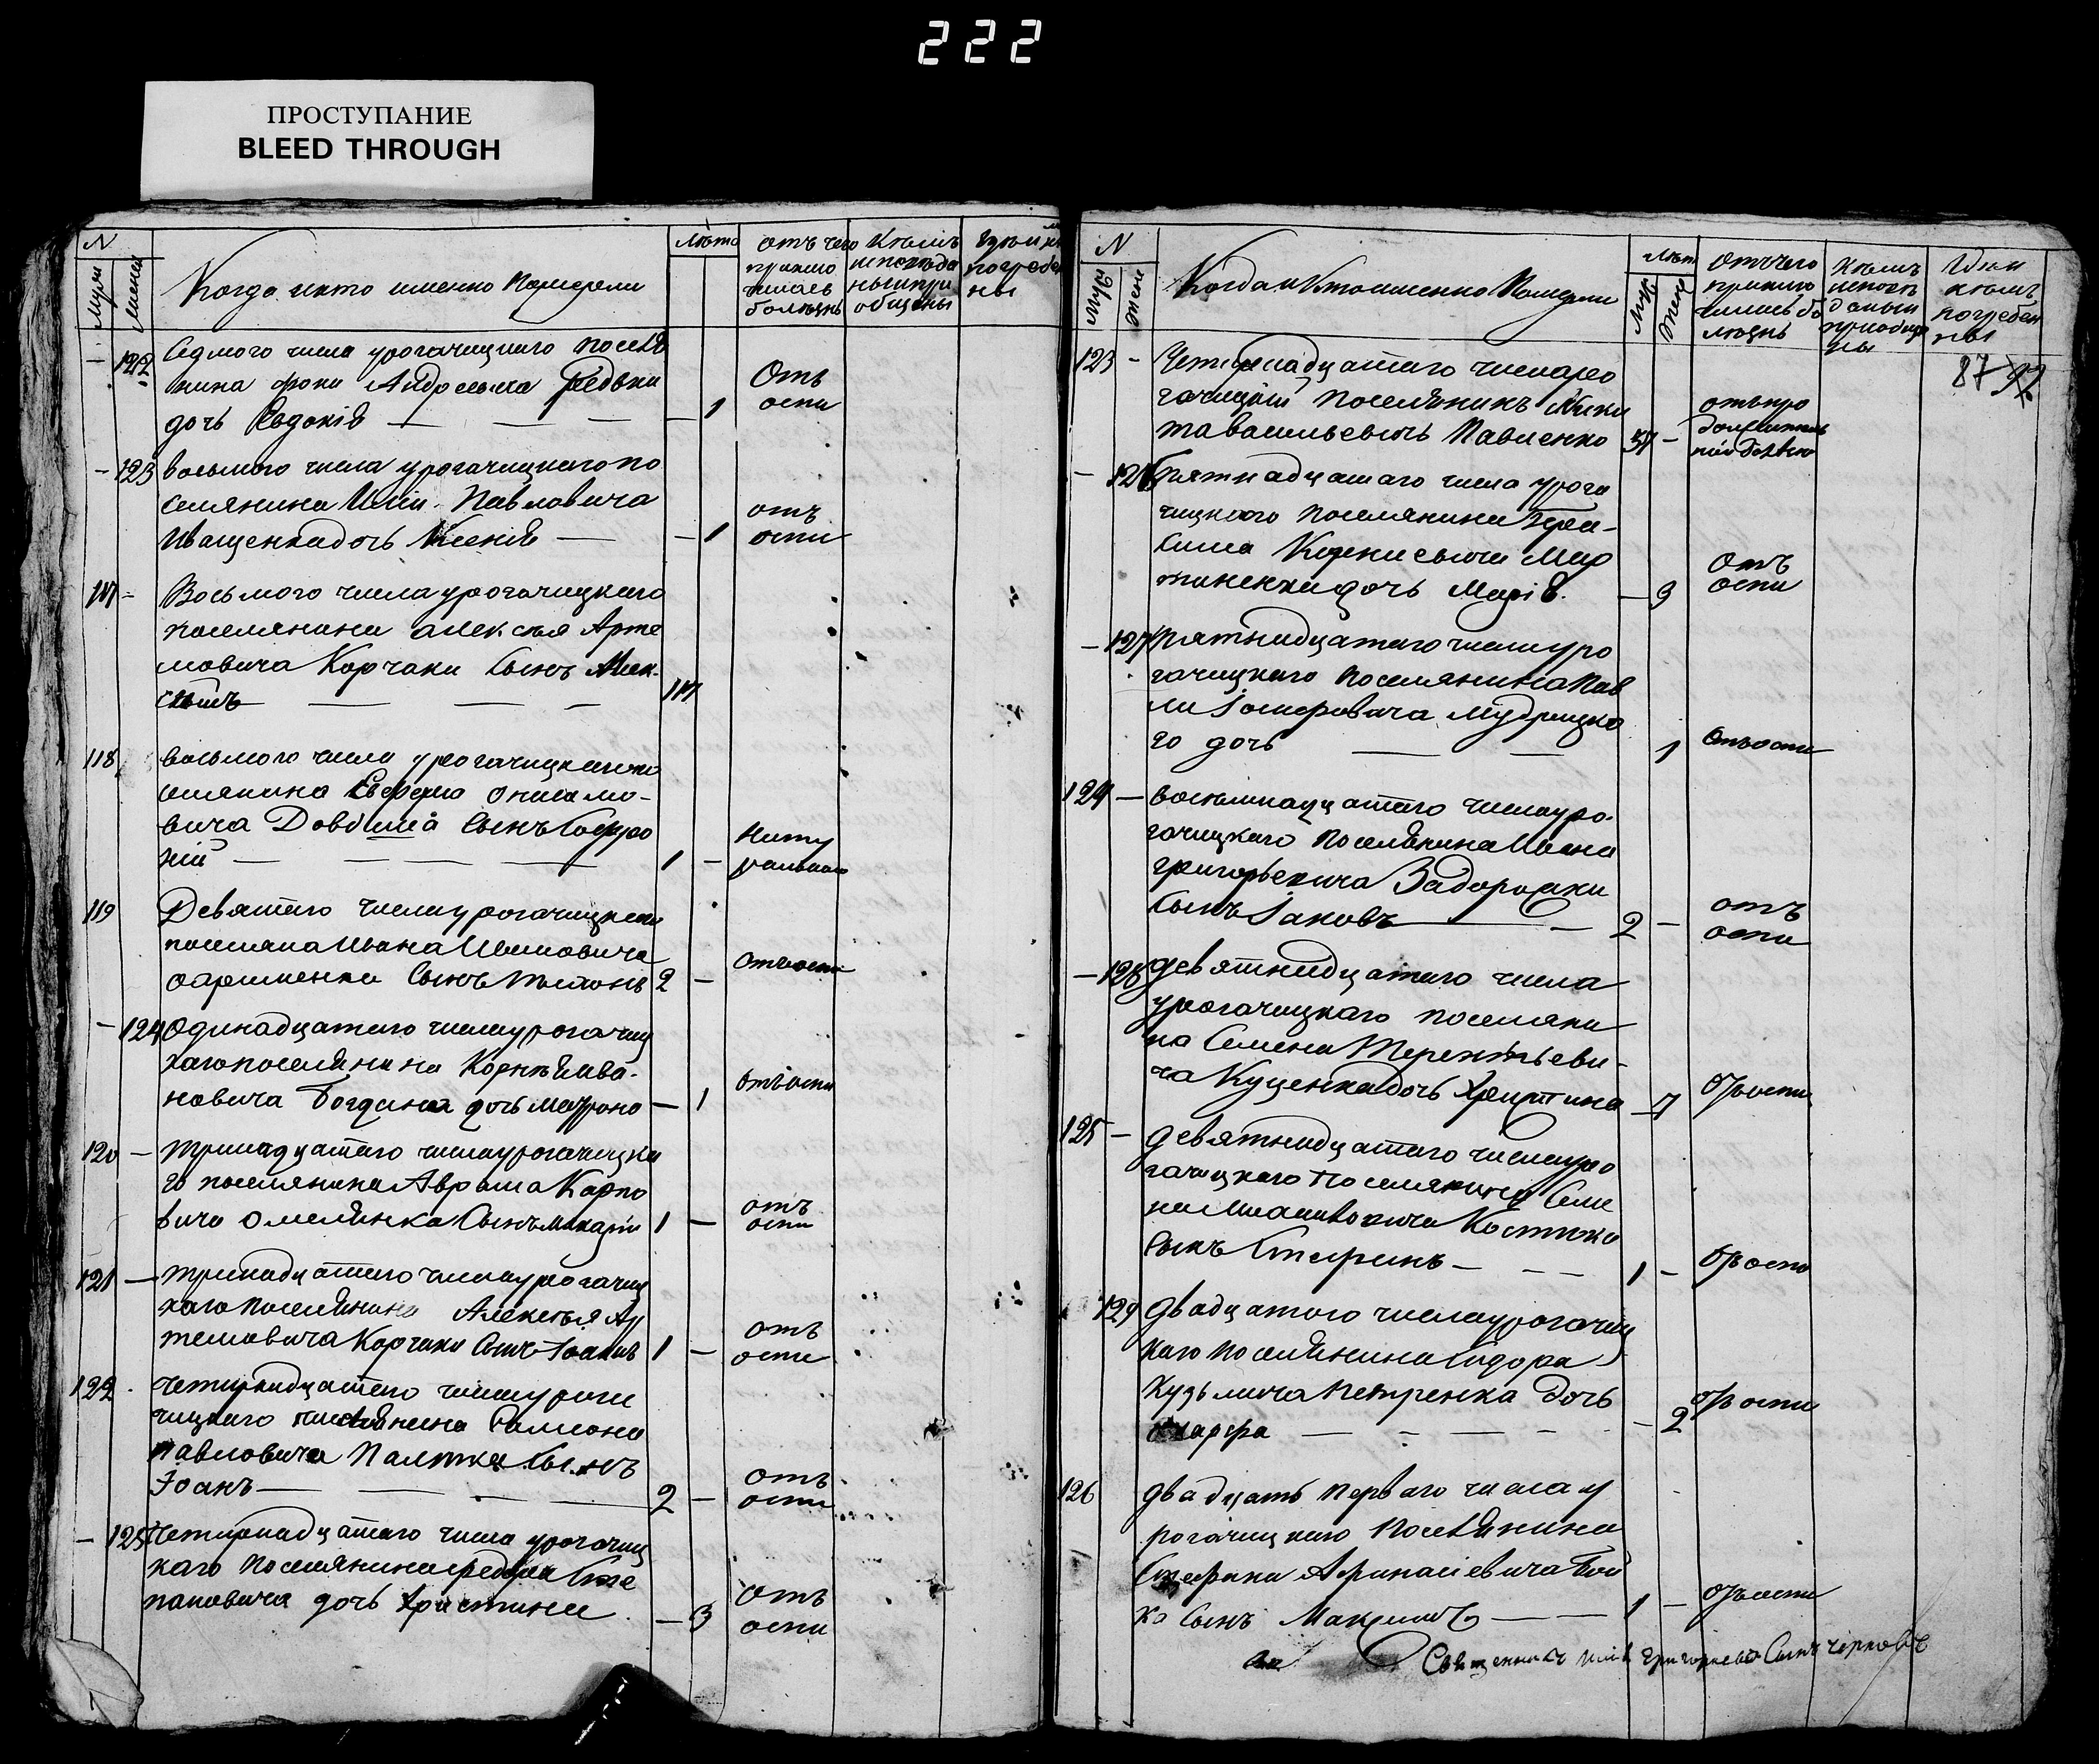 222
ПРОСТУПАНИЕ
BLEED THROUGH
N
Когда и кто именно Померли
Лѣта
отъ чего
приклю
чилась
болѣзнь
Кѣмъ
исповѣда
ны и при
общены
погребе
ны
122
Седмого числа урогачицкаго поселѣ
нина фоки Андреевича Редьки
дочь Евдокія — — — 1
Отъ
оспи
123
восьмого числа урогачицкаго по
селянина Иліи Павловича
Иващенка дочь Ксенія — 1
отъ
оспи
117
Восьмого числа урогачицкаго
поселянина алексея Арте
мовича Корчаки Сынъ Алек
118
восьмого числа урогачицкаго по
селянина
вича Сынъ Софро
ній — — — 1 —
нату
рально
119
Девятого числа урогачицкаго
поселяна Ивана
Сынъ 2 —
отъ оспи
124
Одинадцатого числа урогачиц
каго поселянина Корнѣя Ива
новича Богдана дочь Матрона — 1
отъ оспи
120
Тринадцатого числа урогачицка
го поселянина Аврама Карпо
вича Омелянка Сынъ Макарій 1 —
отъ
оспи
121
Тринадцатого числа урогачиц
каго поселянина Алексея Ар
темовича Корчаки Сынъ Іоанъ 1 —
отъ
оспи
122
Четирнадцатого числа урога
чицкаго поселянина Самсона
Павловича Сынъ
Іоанъ — — — 2 —
отъ
оспи
125
Четирнадцатого числа урогачиц
каго поселянина федора Сте
пановича дочь Христина — 3
отъ
оспи
N
Когда и Кто именно Померли
Лѣт
Муж
Жен
Отъ чего
приклю
чилась бо
лѣзнь
Кѣмъ
исповѣ
даны и
приобще
ны
Гдѣ и
кѣмъ
погребен
ны
87
123
Четирнадцатого числа уро
гачицкій поселянинъ Ники
та васильевичъ Павленко 57 —
126
Пятнадцатого числа урога
чицкого поселянина Гера
сима Корниевича Мар
тиненка дочь Марія — 3
Отъ
оспи
127
Пятнадцатого числа уро
гачицкаго поселянина Пав
ла Іосифовича Мудрицко
го дочь — — 1
Отъ оспи
124
восемнадцатого числа уро
гачицкаго поселянина Ивана
григорьевича Задорожки
Сынъ Іаковъ — 2 —
отъ
оспи
128
девятнадцатого числа
урогачицкаго поселяни
на Семена Терентьеви
ча Куценка дочь Христина — 7
Отъ оспи
125
девятнадцатого числа уро
гачицкаго поселянина Семе
на
Сынъ Стефанъ — — — 1 —
Отъ оспи
129
двадцатого числа урогачиц
каго поселянина Сидора
Кузьмича Петренка дочь
Марфа — — — — 2
отъ оспи
126
двадцать перваго числа у
рогачицкаго поселянина
Стефана Афанасіевича Бой
ко Сынъ Максимъ — — 1 —
Отъ оспи
Священникъ Илія Григориевъ Сынъ Черновъ